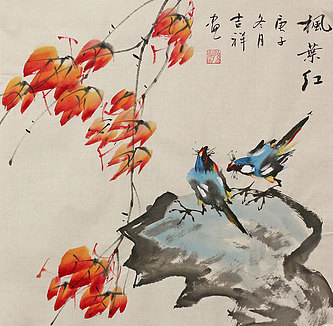 楓葉紅
庚子
冬月
吉祥
画